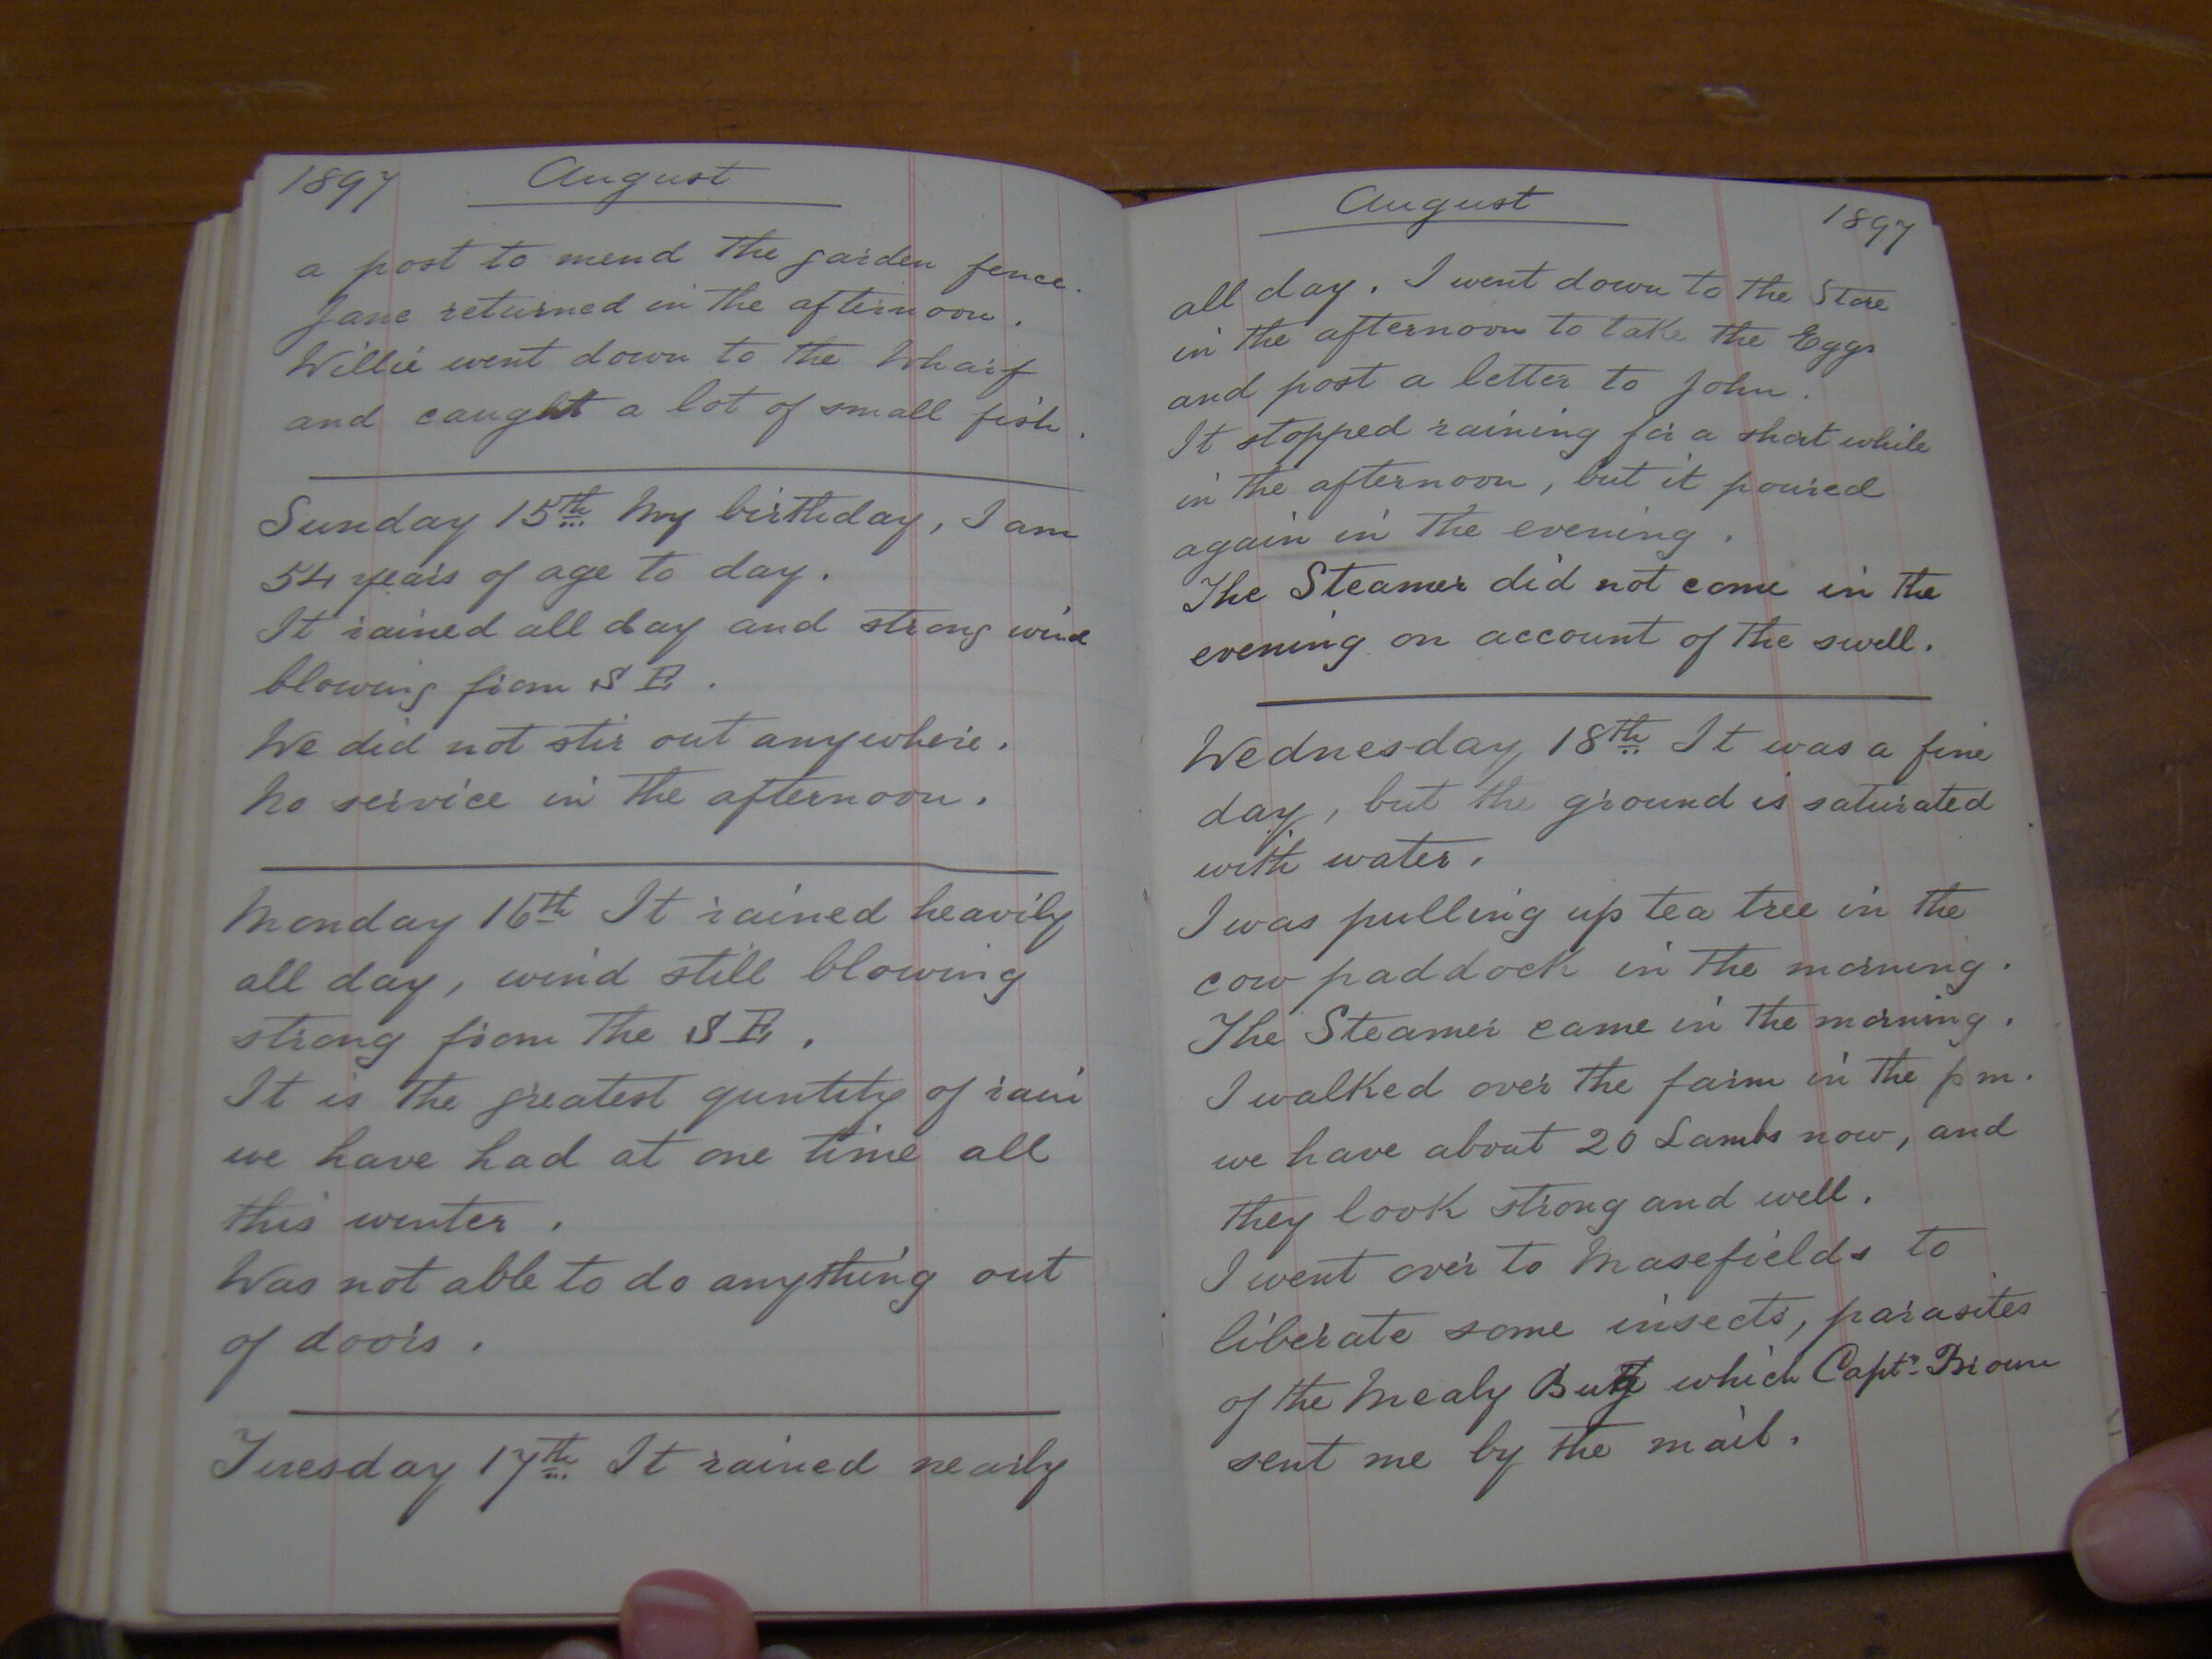 1897 August
a post to mend the garden fence.
Jane returned in the afternoon.
Willie went down to the Wharf
and caught a lot of small fish.
Sunday 15th My birthday, I am
54 years of age to day.
It rained all day and strong wind
blowing from S E.
We did not stir out anywhere.
No service in the afternoon.
Monday 16th It rained heavily
all day, wind still blowing
strong from the S E.
It is the greatest quntity of rain
we have had at one time all
this winter.
Was not able to do anything out
of doors.
Tuesday 17th It rained nearly
August 1897
all day. I went down to the Store
in the afternoon to take the Eggs
and post a letter to John.
It stopped raining for a short while
in the afternoon, but it poured
again in the evening.
The Steamer did not come in the
evening on account of the swell.
Wednesday 18th It was a fine
day, but the ground is saturated
with water.
I was pulling up tea tree in the
cow paddock in the morning.
The Steamer came in the morning.
I walked over the farm in the pm.
we have about 20 Lambs now, and
they look strong and well.
I went over to Masefields to
liberate some insects, parasites
of the Mealy Bug which Capt. Broun
sent me by the mail.